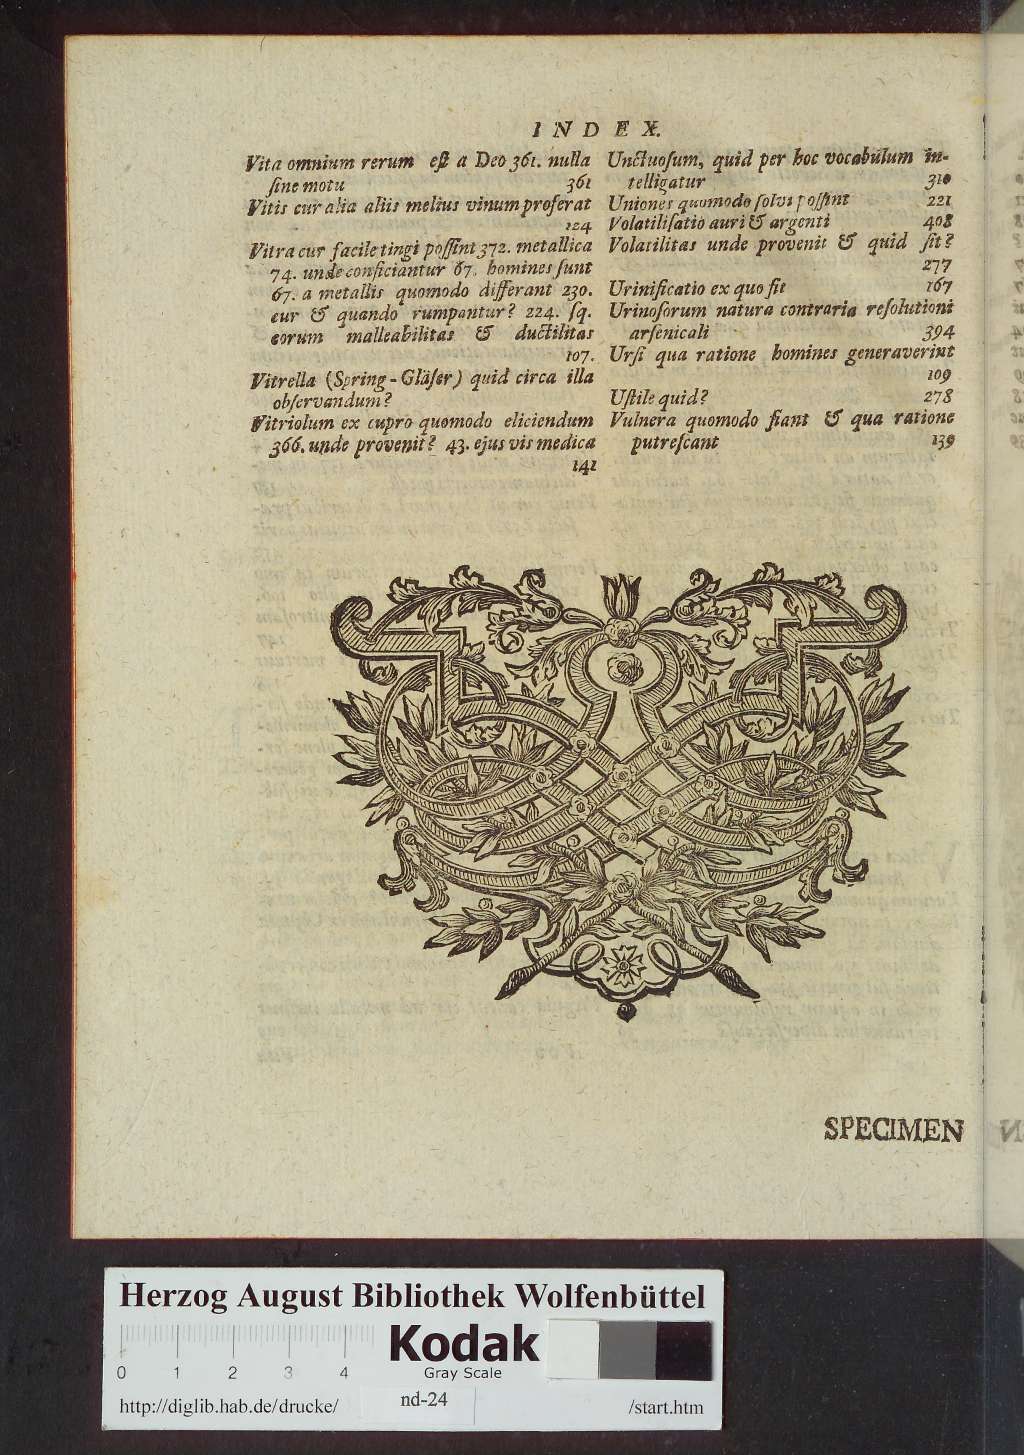 INDEX.
Vita omnium rerum est a Deo 361. nulla
sine motu 361
Vitis cur alia aliis melius vinum proferat
124
Vitra cur facile tingi possint 372. metallica
74. unde conficiantur 67. homines sunt
67. a metallis quomodo differant 230.
cur & quando rumpantur? 224. sq.
eorum malleabilitas & ductilitas
107.
Vitrella (Spring-Gläser) quid circa illa
observandum?
Vitriolum ex cupro quomodo eliciendum
366. unde provenit? 43. ejus vis medica
141
Unctuosum, quid per hoc vocabulum in-
telligatur 310
Uniones quomodo solvi possint 221
Volatilisatio auri & argenti 408
Volatilitas unde provenit & quid sit?
277
Urinificatio ex quo fit 167
Urinosorum natura contraria resolutioni
arsenicali 394
Ursi qua ratione homines generaverint
109
Ustile quid? 278
Vulnera quomodo fiant & qua ratione
putrescant 139
SPECIMEN
Herzog August Bibliothek Wolfenbüttel
Kodak
Gray Scale
0 1 2 3 4
http://diglib.hab.de/drucke/ nd-24 /start.htm